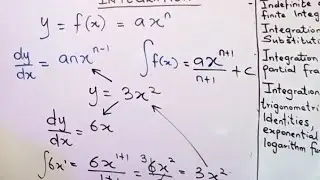 INTEGRATION
y = f(x) = axⁿ
dy/dx = anxⁿ⁻¹
∫f(x) = axⁿ⁺¹/n+1 + c
y = 3x²
dy/dx = 6x
∫6x¹ = 6x¹⁺¹/1+1 = 6x²/ = 3x²
Indefinite
finite Integ
Integration
Substituti
Integration
partial fra
Integration
trigonometri
Identities,
exponential
logarithm fu